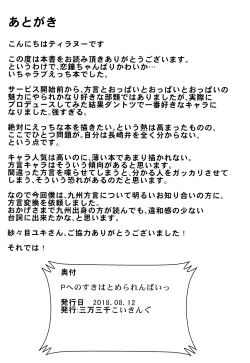 あとがき
こんにちはティラヌーです
この度は本書をお読み頂きありがとうございます。
というわけで、恋鐘ちゃんばりかわいか…
いちゃラブえっち本でした。
サービス開始前から、方言とおっぱいとおっぱいとおっぱいの
魅力にやられかなり好きな部類ではありましたが、実際に
プロデュースしてみた結果ダントツで一番好きなキャラに
なりました。強すぎる。
絶対にえっちな本を描きたい。という熱は高まったものの、
ここでひとつ問題が。自分は長崎弁を全く分からない、
という点です。
キャラ人気は高いのに、薄い本であまり描かれない。
方言キャラはそういう傾向があると思います。
間違った方言を喋らせてしまうと、分かる人をガッカリさせて
しまう、そういう恐れがあるのだと思います。
なので今回僕は、九州方言について明るいお知り合いの方に、
方言変換を依頼しました。
おかげさまで九州出身の方が読んでも、違和感の少ない
台詞に出来たかな、と思います。
紗々目ユキさん、ご協力ありがとうございました！
それでは！
奥付
Pへのすきはとめられんばいっ
発行日 2018.08.12
発行:三万三千こいきんぐ